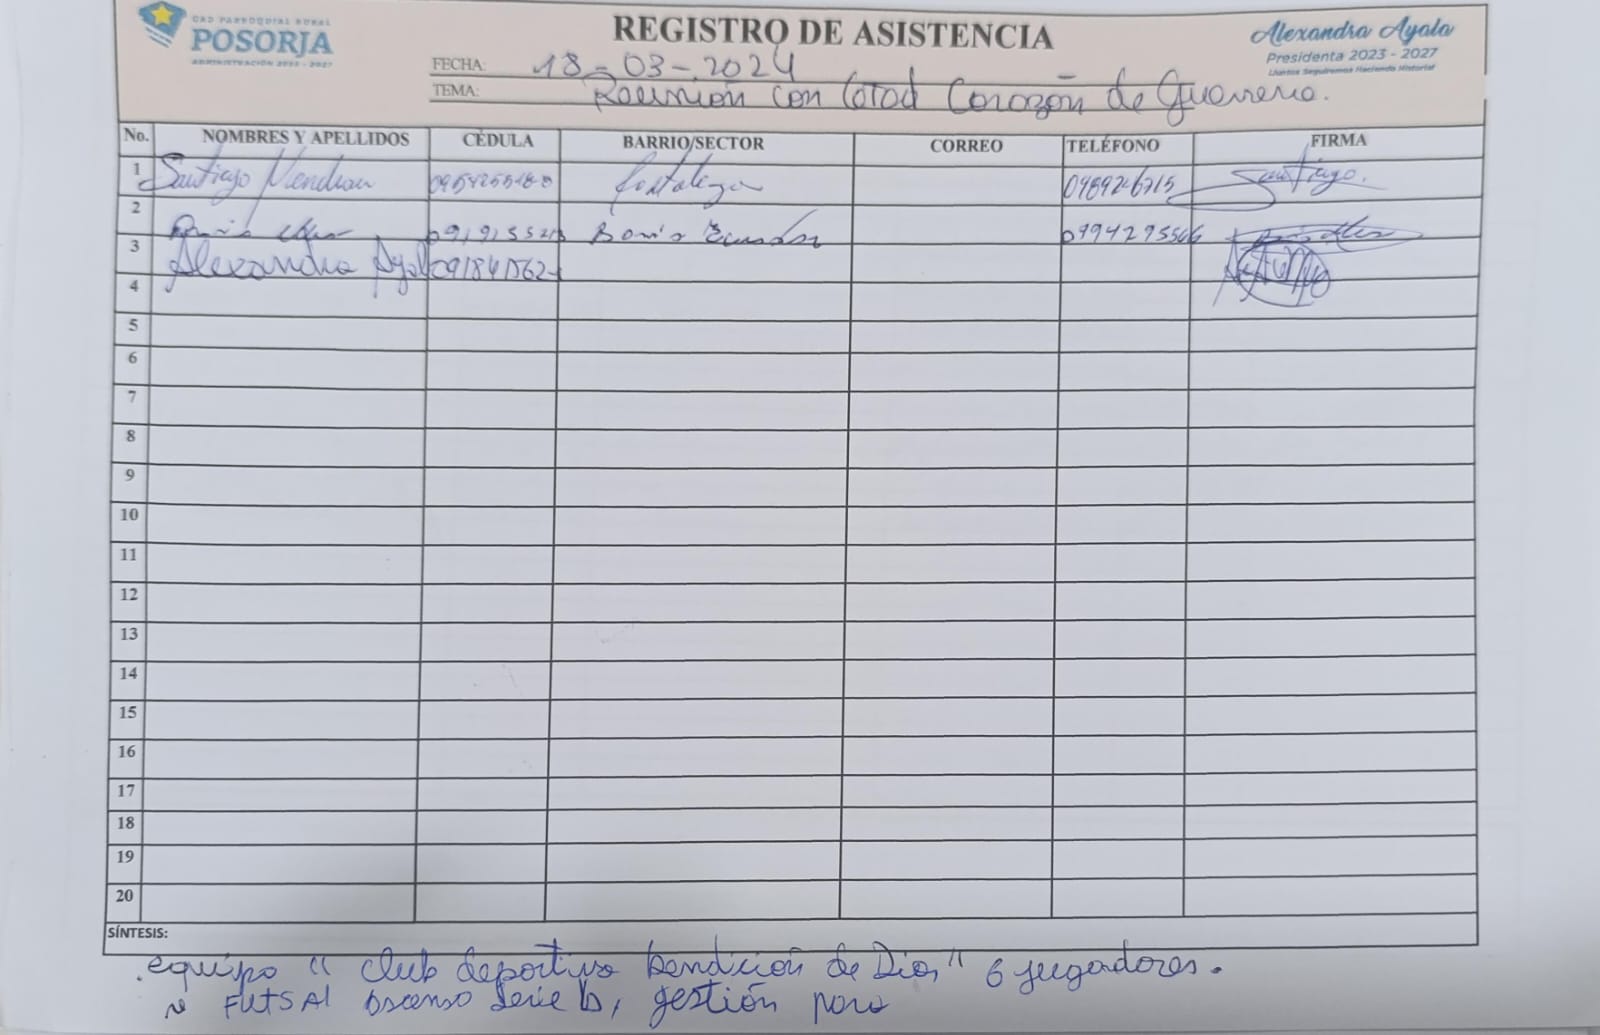 GAD PARROQUIAL RURAL
POSORJA
ADMINISTRACIÓN 2023 - 2027
REGISTRO DE ASISTENCIA
Alexandra Ayala
Presidenta 2023 - 2027
¡Juntos Seguiremos Haciendo Historia!
FECHA: 18-03-2024
TEMA: Reunión con Corazón de Guerrero.
No. NOMBRES Y APELLIDOS CÉDULA BARRIO/SECTOR CORREO TELÉFONO FIRMA
1 Santiago Fortaleza Santiago.
2 0994295566
3 Alexandra
4
5
6
7
8
9
10
11
12
13
14
15
16
17
18
19
20
SÍNTESIS:
. equipo "club deportivo bendición de Dios" 6 jugadores.
FUTSAL ascenso serie b, gestión para